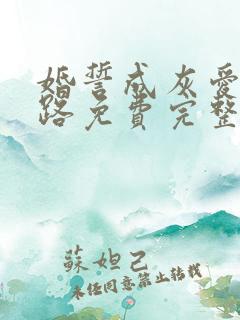 婚誓成灰愛
路免費完整
蘇妲己
未经同意禁止转载